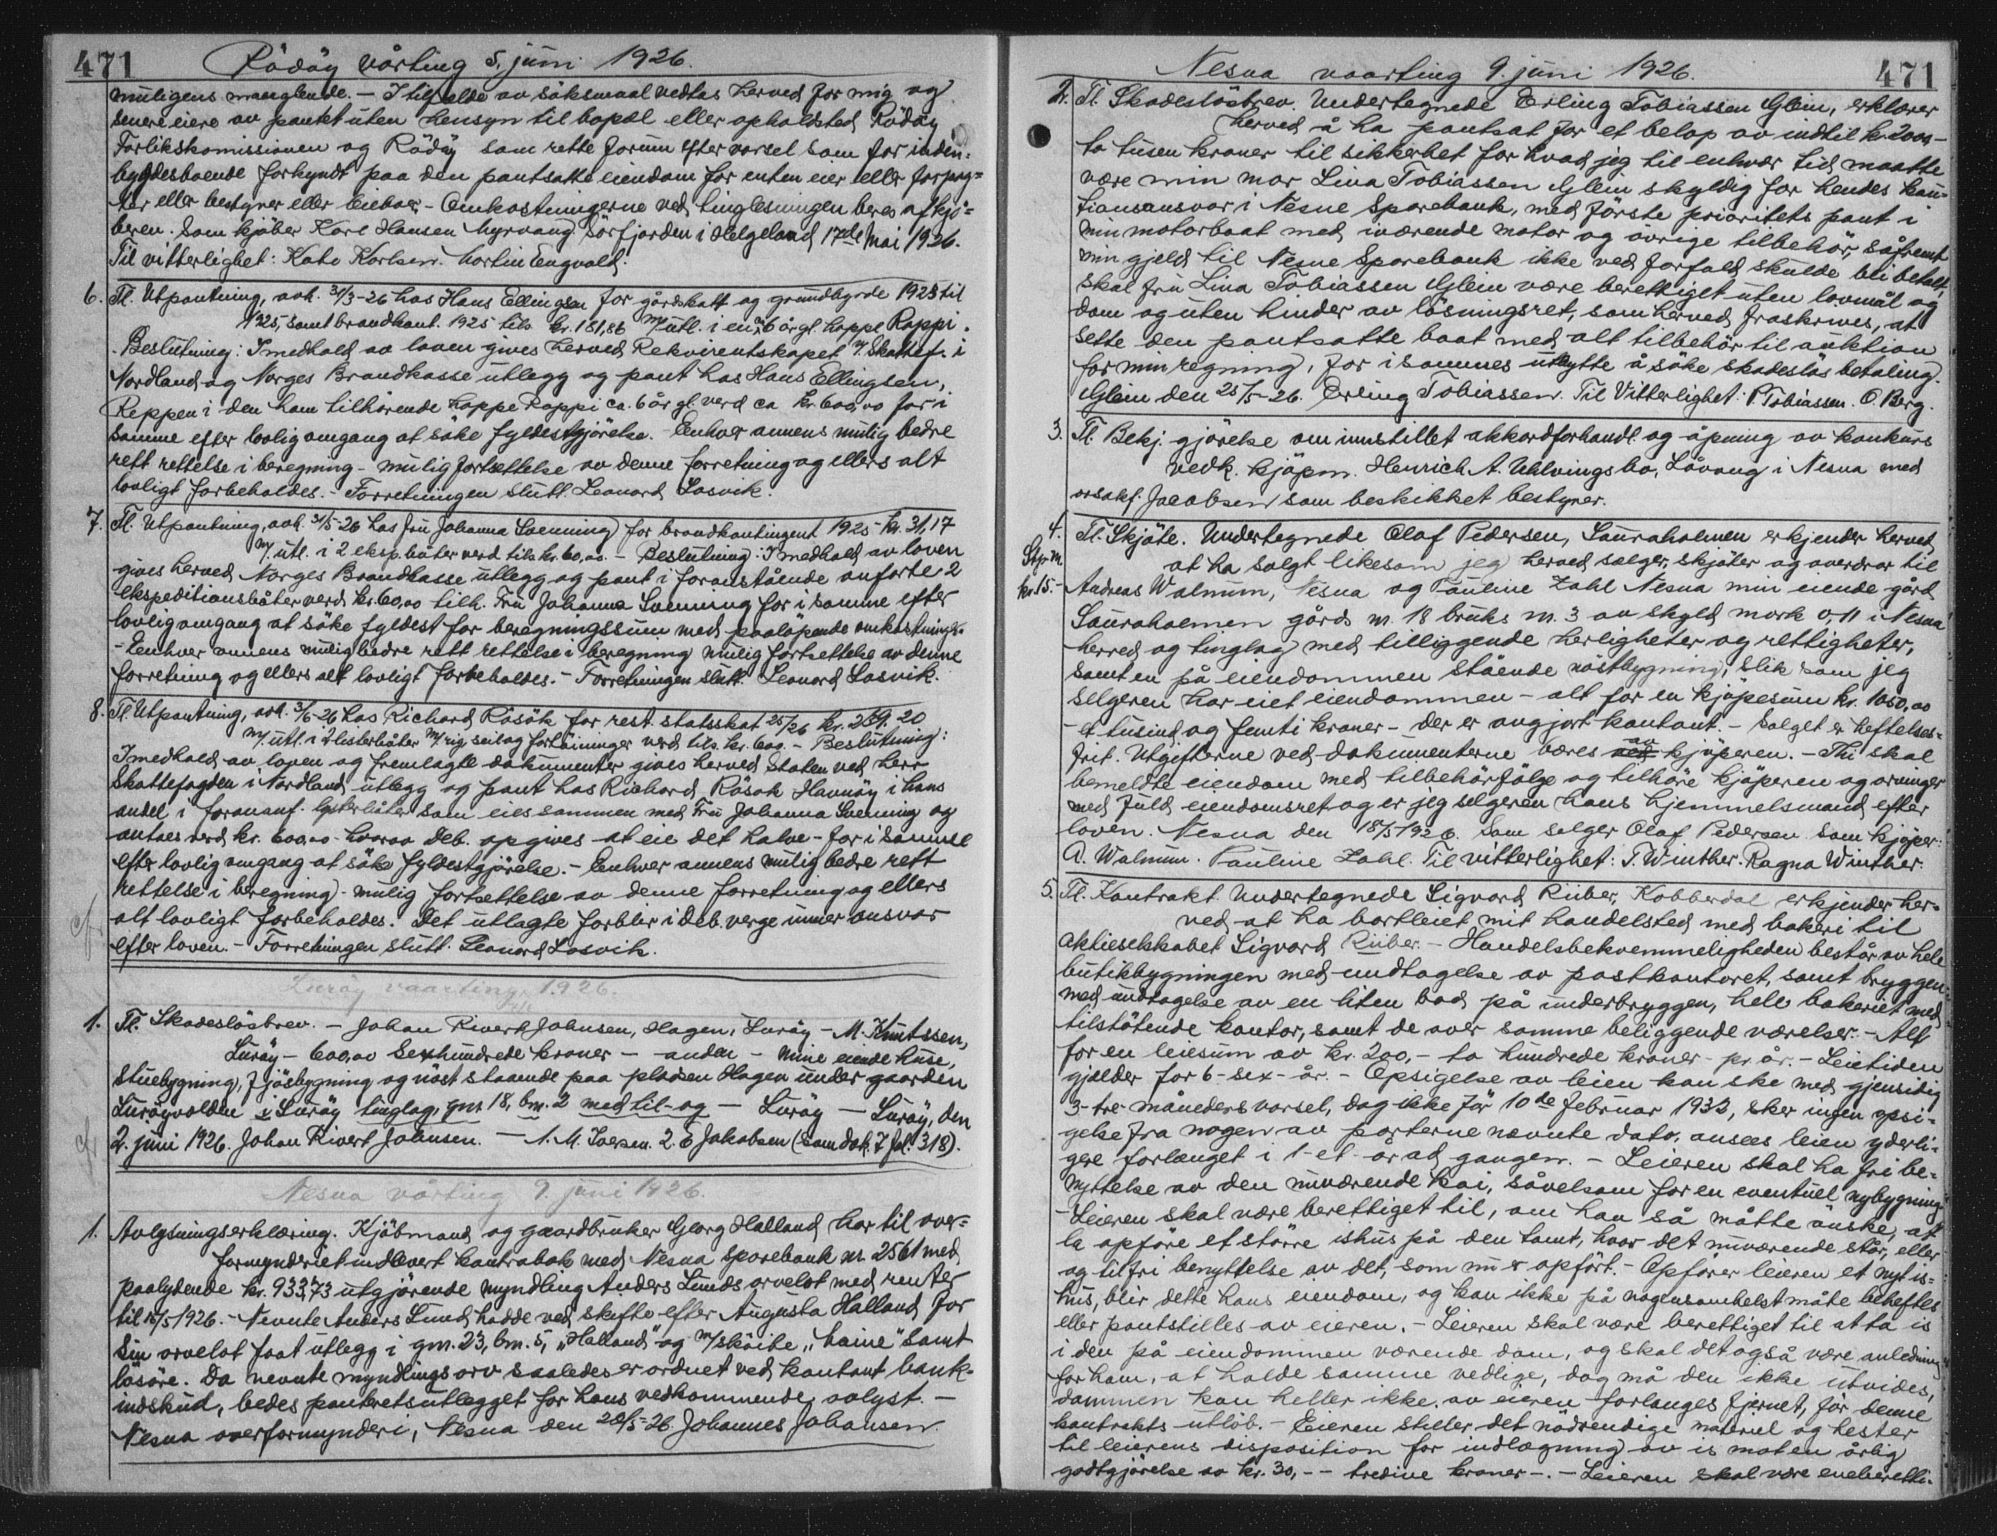 471
Rödöy vårting 5. juni 1926.
muligens manglende. - I tilfælde av söksmaal vedtas herved for mig og
senere eiere av pantet uten hensyn til bopæl eller opholdsted Rödöy
Forlikskomissionen og Rödöy som rette forum efter varsel som for inden-
bygdesboende forkyndt paa den pantsatte eiendom for enten eier eller forpag-
ter eller bestyrer eller leieboer. - Omkostningerne ved tinglesningen beres af kjö-
beren. Som kjöber Karl Hansen Myrvang Sörfjorden i Helgeland 17de Mai 1926.
Til vitterlighet: Kato Karlsen. Martin Engvold.
6. Tl. Utpantning, avh. 31/3-26 hos Hans Ellingsen for gårdskatt og grundbyrde 1923 til
1925, samt brandkont. 1925 tils. kr. 181,86 m/utl. i en ca. 6 år gl. hoppe Rappi.
Beslutning: I medhold av loven gives herved Rekvirentskapet v/ Skattef. i
Nordland og Norges Brandkasse utlegg og pant hos Hans Ellingsen,
Reppen i den ham tilhörende hoppe Rappi ca. 6 år gl. verd ca kr. 600,00 for i
samme efter lovlig omgang at söke fyldestgjörelse. - Enhver annens mulig bedre
rett rettelse i beregning - mulig fortsettelse av denne forretning og ellers alt
lovligt forbeholdes. - Forretningen slutt. Leonard Losvik.
7. Tl. Utpantning, avh. 31/5-26 hos fru Johanna Svenning for brandkontingent 1925 kr. 31,17
m/utl. i 2 eksp. båter verd tils. kr. 60,00. - Beslutning: I medhold av loven
gives herved Norges Brandkasse utlegg og pant i foranstående anförte 2
ekspeditionsbåter verd kr. 60,00 tilh. Fru Johanna Svenning for i samme efter
lovlig omgang at söke fyldest for beregningssum med paalöpende omkostninger.
- Eenhver annens mulig bedre rett rettelse i beregning mulig fortsettelse av denne
forretning og ellers alt lovligt forbeholdes. - Forretningen slutt. Leonard Losvik.
8. Tl. Utpantning, avh. 3/6-26 hos Richard Rösök for rest. statsskat 25/26 kr. 259.20
m/utl. i 2 listerbåter m/rig seil og fortöininger verd tils. kr. 600. - Beslutning:
I medhold av loven og fremlagte dokumenter gives herved Staten ved herr
Skattefogden i Nordland utlegg og pant hos Richard Rösok Havnöy i hans
andel i forannf. listerbåter som eies sammen med Fru Johanna Svenning og
antaes verd kr. 600,00 hvorav Deb. opgives at eie det halve - for i samme
efter lovlig omgang at söke fyldestgjörelse. - Eenhver annens mulig bedre rett
rettelse i beregning - mulig fortsettelse av denne forretning og ellers
alt lovligt forbeholdes. Det utlagte forblir i Deb. verge under ansvar
efter loven. - Forretningen slutt. Leonard Losvik.
Luröy vaarting 1926.
1. Tl. Skadeslösbrev. - Johan Rivert Johnsen, Hagen, Luröy - M. Knutssen,
Luröy - 600,00 Sexhundrede kroner - anden - mine eiende huse,
Stuebygning, fjösbygning og nöst staaende paa pladsen Hagen under gaarden
Luröyvolden i Luröy tinglag, gnr. 18, bnr. 2 med til- og - Luröy - Luröy, den
2. juni 1926. Johan Rivert Johnsen. - 1. M. Iversen. 2. E Jakobsen (som dok. 7 fol. 318).
Nesna vårting 9. juni 1926.
1. Avlysningserklæring. Kjöbmand og gaardbruker Georg Halland har til over-
formynderiet indlevert kontrabok med Nesna sparebank nr. 2561 med
paalydende kr. 933,73 utgjörende myndling Anders Lunds arvelot med renter
til 15/5 1926. - Nevnte Anders Lund hadde ved skifte efter Augusta Halland for
sin arvelot faat utlegg i gnr. 23, bnr. 5, "Halland" og m/sköite "Laine" samt
lösöre. Da nevnte myndlings arv saaledes er ordnet ved kontant bank-
indskud, bedes panteretsutlegget for hans vedkommende avlyst. -
Nesna overformynderi, Nesna den 28/5-26 Johannes Johansen.
471
Nesna vaarting 9. juni 1926.
2. Tl. Skadeslösbrev. Undertegnede Erling Tobiassen Glein, erklærer
herved å ha pantsat for et belop av indtil kr. 2000,-
to tusen kroner til sikkerhet for hvad jeg til enhver tid maatte
være min mor Lina Tobiassen Glein skyldig for hendes kau-
tionsansvar i Nesne Sparebank, med förste prioritets pant i
min motorbaat med iværende motor og övrige tilbehör, såfremt
min gjeld til Nesne Sparebank ikke ved forfald skulde bli betalt,
skal fru Lina Tobiassen Glein være berettiget uten lovmål og
dom og uten hinder av lösningsret, som herved fraskrives, at
sette den pantsatte baat med alt tilbehör til auktion
for min regning, for i sammes utbytte å söke skadeslös betaling.
Glein den 25/5-26. Erling Tobiassen. Til Vitterlighet: P. Tobiassen. O. Berg.
3. Tl. Bekj. gjörelse om innstillet akkordforhandl. og åpning av konkurs
vedk. kjöpm. Henrich A. Uhlvings bo, Lövang i Nesna med
orsakf. Jacobsen som beskikket bestyrer.
4. Tl. Skjöte. Undertegnede Olaf Pedersen, Sauraholmen erkjender herved
Stp. m.
kr. 15.-
at ha solgt likesom jeg herved sælger, skjöter og overdrar til
Andreas Walnum, Nesna og Pauline Zahl Nesna min eiende gård
Sauraholmen gårds nr. 18 bruks nr. 3 av skyld mark 0,11 i Nesna
herred og tinglag med tilliggende herligheter og rettigheter,
samt en på eiendommen stående nöstbygning, slik som jeg
selgeren har eiet eiendommen - alt for en kjöpesum kr. 1050,00
- et tusind og femti kroner - der er avgjort kontant. - Salget er heftelses-
frit. Utgifterne ved dokumenterne væres av kjöperen. - Thi skal
bemeldte eiendom med tilbehör fölge og tilhöre kjöperen og arvinger
med fuld eiendomsret og er jeg selgeren hans hjemmelsmand efter
loven. Nesna den 18/5 1926. Som selger Olaf Pedersen. Som kjöper:
A. Walnum. Pauline Zahl. Til vitterlighet: T. Winther. Ragna Winther.
5. Tl. Kontrakt. Undertegnede Sigvard Riiber, Kobberdal erkjender her-
ved at ha bortleiet mit handelsted med bakeri til
Aktieselskabet Sigvard Riiber. - Handelsbekvemmeligheden består av hele
butikbygningen med undtagelse av postkontoret, samt bryggen
med undtagelse av en liten bod på underbryggen, hele bakeriet med
tilstötende kontor, samt de over samme beliggende værelser. - Alt
for en leiesum av kr. 200,- to hundrede kroner pr. år. - Leietiden
gjælder for 6 - sex - år. - Opsigelse av leien kan ske med gjensidig
3 - tre - måneders varsel, dog ikke för 10de februar 1933, sker ingen opsi-
gelse fra nogen av parterne nævnte dato, ansees leien yderli-
gere forlænget i 1 - et - år ad gangen. - Leieren skal ha fri be-
nyttelse av den nuværende kai, såvelsom for en eventuel nybygning
- Leieren skal være berettiget til, om han så måtte önske, at
la opföre et större ishus på den tomt, hvor det nuværende står, eller
og til fri benyttelse av det, som nu er opfört. - Opförer leieren et nyt is-
hus, blir dette hans eiendom, og kan ikke på nogensomhelst måte beheftes
eller pantstilles av eieren. - Leieren skal være berettiget til at ta is
i den på eiendommen værende dam, og skal det også være anledning
for ham, at holde samme vedlige, dog må den ikke utvides,
dammen kan heller ikke av eieren forlanges fjernet, för denne
kontrakts utlöb. - Eieren stiller det nödvendige materiel og hester
til leierens disposition for indlægning av is mot en årlig
godtgjörelse av kr. 30,- - tredive kroner -. - Leieren skal være eneberetti-